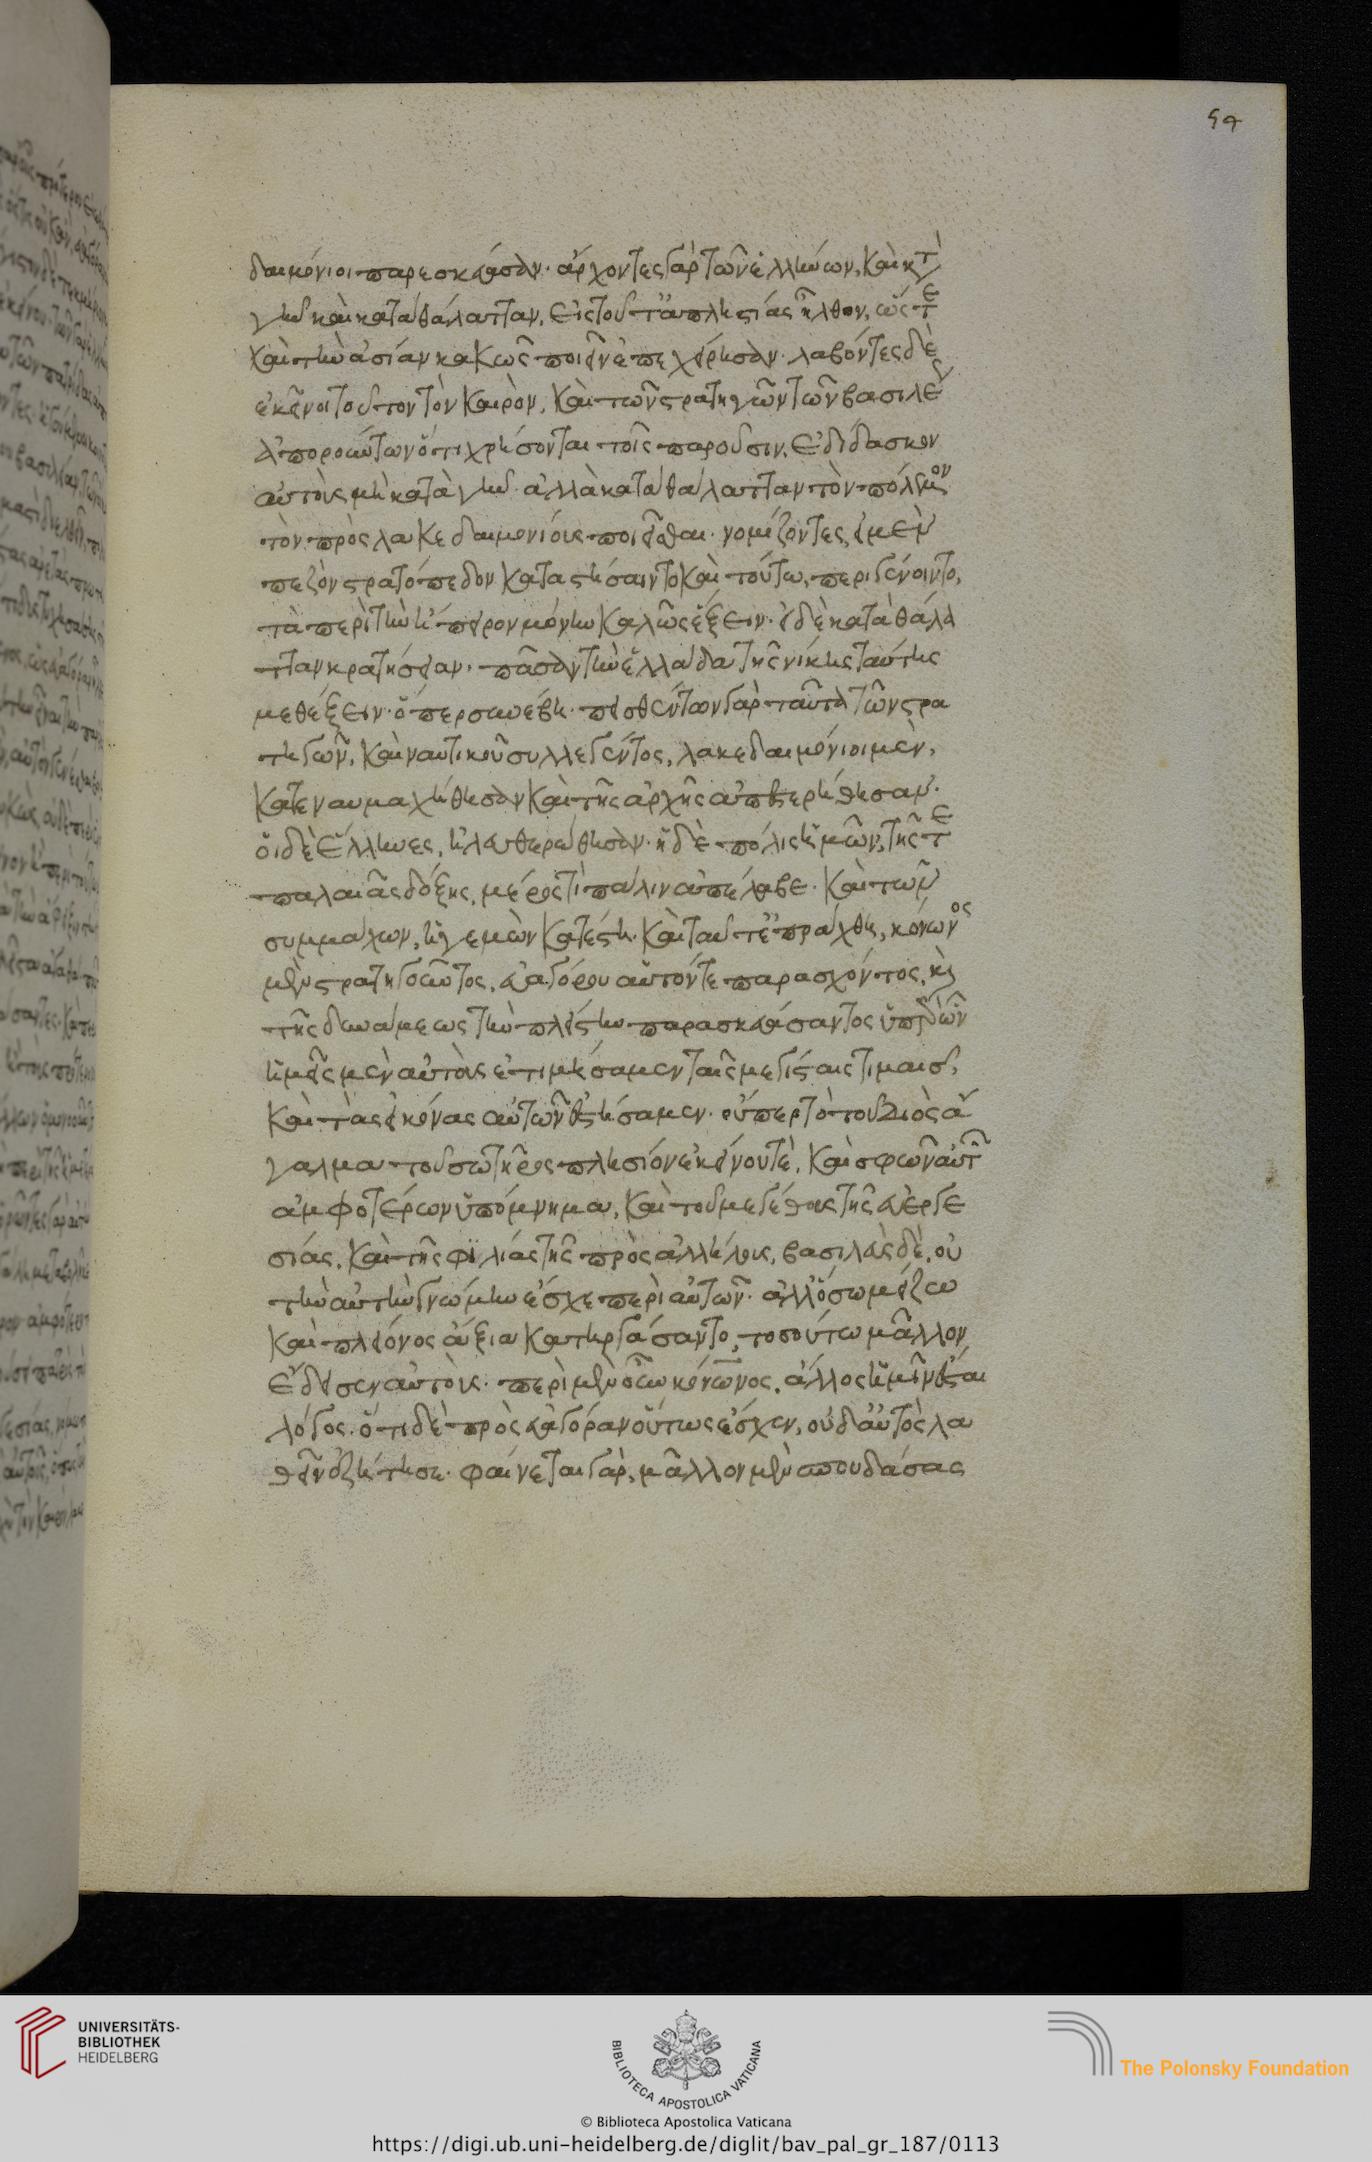 54
δαιμόνιοι παρεσκεύασαν. ἄρχοντες γὰρ τῶν ἑλλήνων, καὶ κτ
γῆν καὶ κατὰ θάλατταν, εἰς τοῦτ' ἀπληστίας ἦλθον, ὥστε
καὶ τὴν ἀσίαν κακῶς ποιεῖν ἐπεχείρησαν. λαβόντες δὲ
ἐκεῖνοι τοῦτον τὸν καιρὸν, καὶ τῶν στρατηγῶν τῶν βασιλέως
ἀπορούντων ὅτι χρήσονται τοῖς παροῦσιν, ἐδίδασκον
αὐτοὺς μὴ κατὰ γῆν ἀλλὰ κατὰ θάλατταν τὸν πόλεμον
τὸν πρὸς λακεδαιμονίους ποιεῖσθαι. νομίζοντες, εἰ μὲν
πεζὸν στρατόπεδον καταστήσαιντο καὶ τούτω, περιγένοιντο,
τὰ περὶ τὴν ἤπειρον μόνην καλῶς ἕξειν. εἰ δὲ κατὰ θάλα
τταν κρατήσειαν. πᾶσαν τὴν ἑλλάδα τῆς νίκης ταύτης
μεθέξειν. ὅπερ συνέβη. πεισθέντων γὰρ ταῦτα τῶν στρα
τηγῶν, καὶ ναυτικοῦ συλλεγέντος, λακεδαιμόνιοι μὲν,
κατεναυμαχήθησαν καὶ τῆς ἀρχῆς ἀπεστερήθησαν.
οἱ δὲ ἕλληνες, ἠλευθερώθησαν. ἡ δὲ πόλις ἡμῶν, τῆς τε
παλαιᾶς δόξης, μέρος τὶ πάλιν ἀπέλαβε. καὶ τῶν
συμμάχων, ἡγεμὼν κατέστη. καὶ ταῦτ' ἐπράχθη, κόνωνος
μὲν στρατηγοῦντος, εὐαγόρου αὑτόν τε παρασχόντος, κὶ
τῆς δυνάμεως τὴν πλείστην παρασκευάσαντος ὑπὲρ ὧν
ἡμεῖς μὲν αὐτοὺς ἐτιμήσαμεν ταῖς μεγίσταις τιμαῖς,
καὶ τὰς εἰκόνας αὐτῶν ἐστήσαμεν. οὗπερ τὸ τοῦ διὸς ἄ
γαλμα τοῦ σωτῆρος πλησίον ἐκείνου τε, καὶ σφῶν αὐτῶν
ἀμφοτέρων ὑπόμνημα, καὶ τοῦ μεγέθους τῆς εὐεργε
σίας, καὶ τῆς φιλίας τῆς πρὸς ἀλλήλους, βασιλεὺς δὲ, οὐ
τὴν αὐτὴν γνώμην ἔσχε περὶ αὐτῶν. ἀλλ' ὅσω μείζω
καὶ πλείονος ἄξια κατειργάσαντο, τοσούτω μᾶλλον
ἔδεισεν αὐτούς. περὶ μὲν οὖν κόνωνος, ἄλλος ἡμῖν ἔσται
λόγος. ὅτι δὲ πρὸς εὐαγόραν οὕτως ἔσχεν, οὐδ' αὐτὸς λα
θεῖν ἐζήτησε. φαίνεται γὰρ, μᾶλλον μὲν σπουδάσας
UNIVERSITÄTS-
BIBLIOTHEK
HEIDELBERG
BIBLIOTECA APOSTOLICA VATICANA
The Polonsky Foundation
© Biblioteca Apostolica Vaticana
https://digi.ub.uni-heidelberg.de/diglit/bav_pal_gr_187/0113